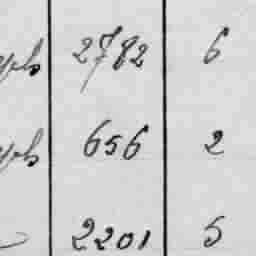 2782 6
656 2
2201 5